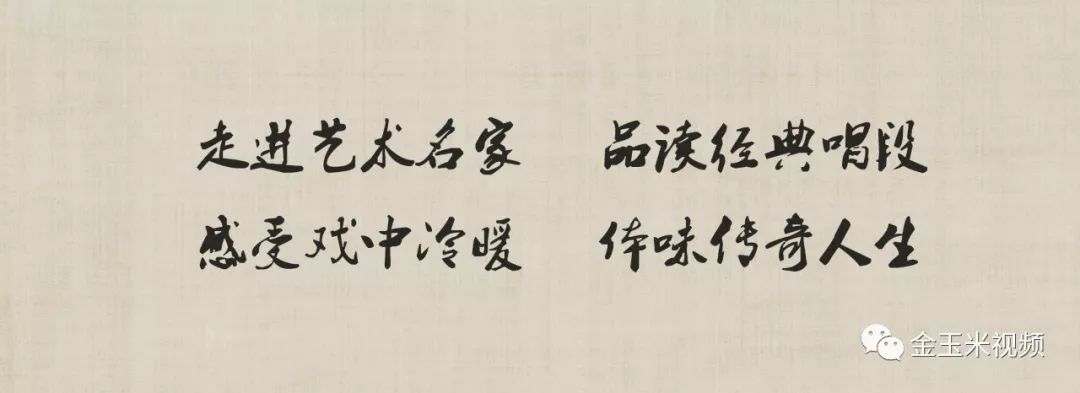 走进艺术名家 品读经典唱段
感受戏中冷暖 体味传奇人生
金玉米视频